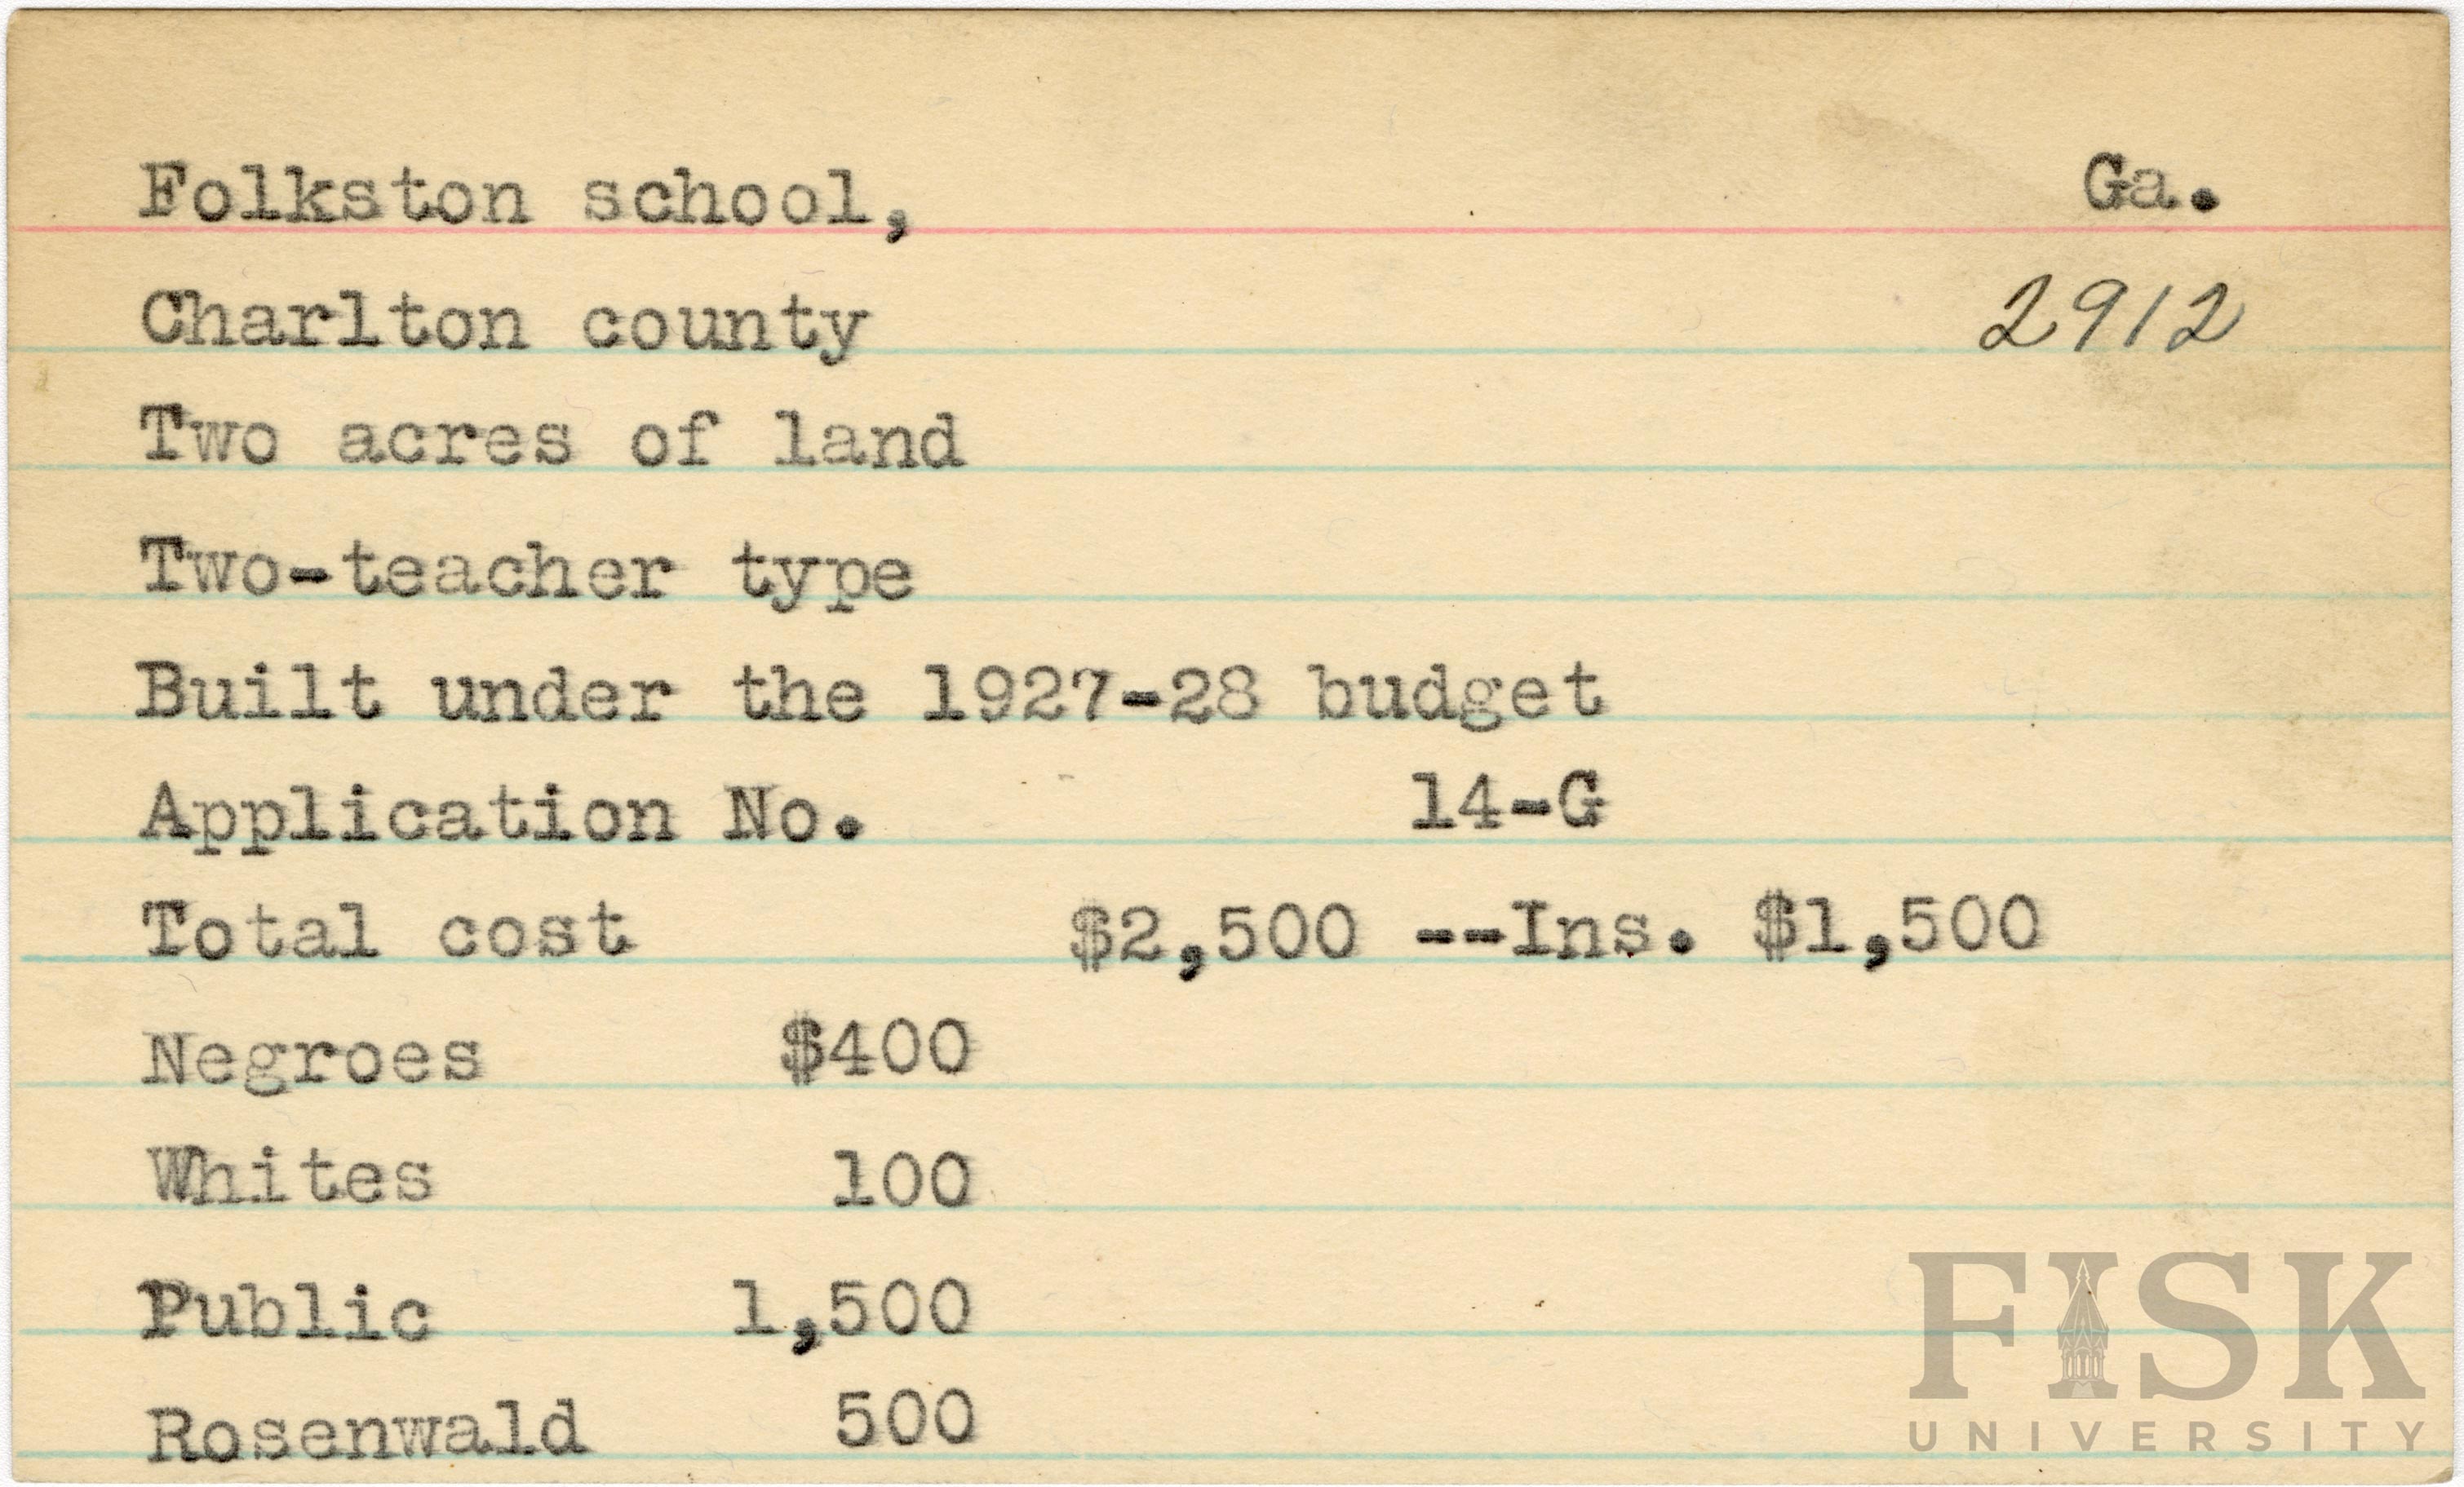 Folkston school, Ga.
Charlton county 2912
Two acres of land
Two-teacher type
Built under the 1927-28 budget
Application No. 14-G
Total cost $2,500 --Ins. $1,500
Negroes $400
Whites 100
Public 1,500
Rosenwald 500
FISK
UNIVERSITY